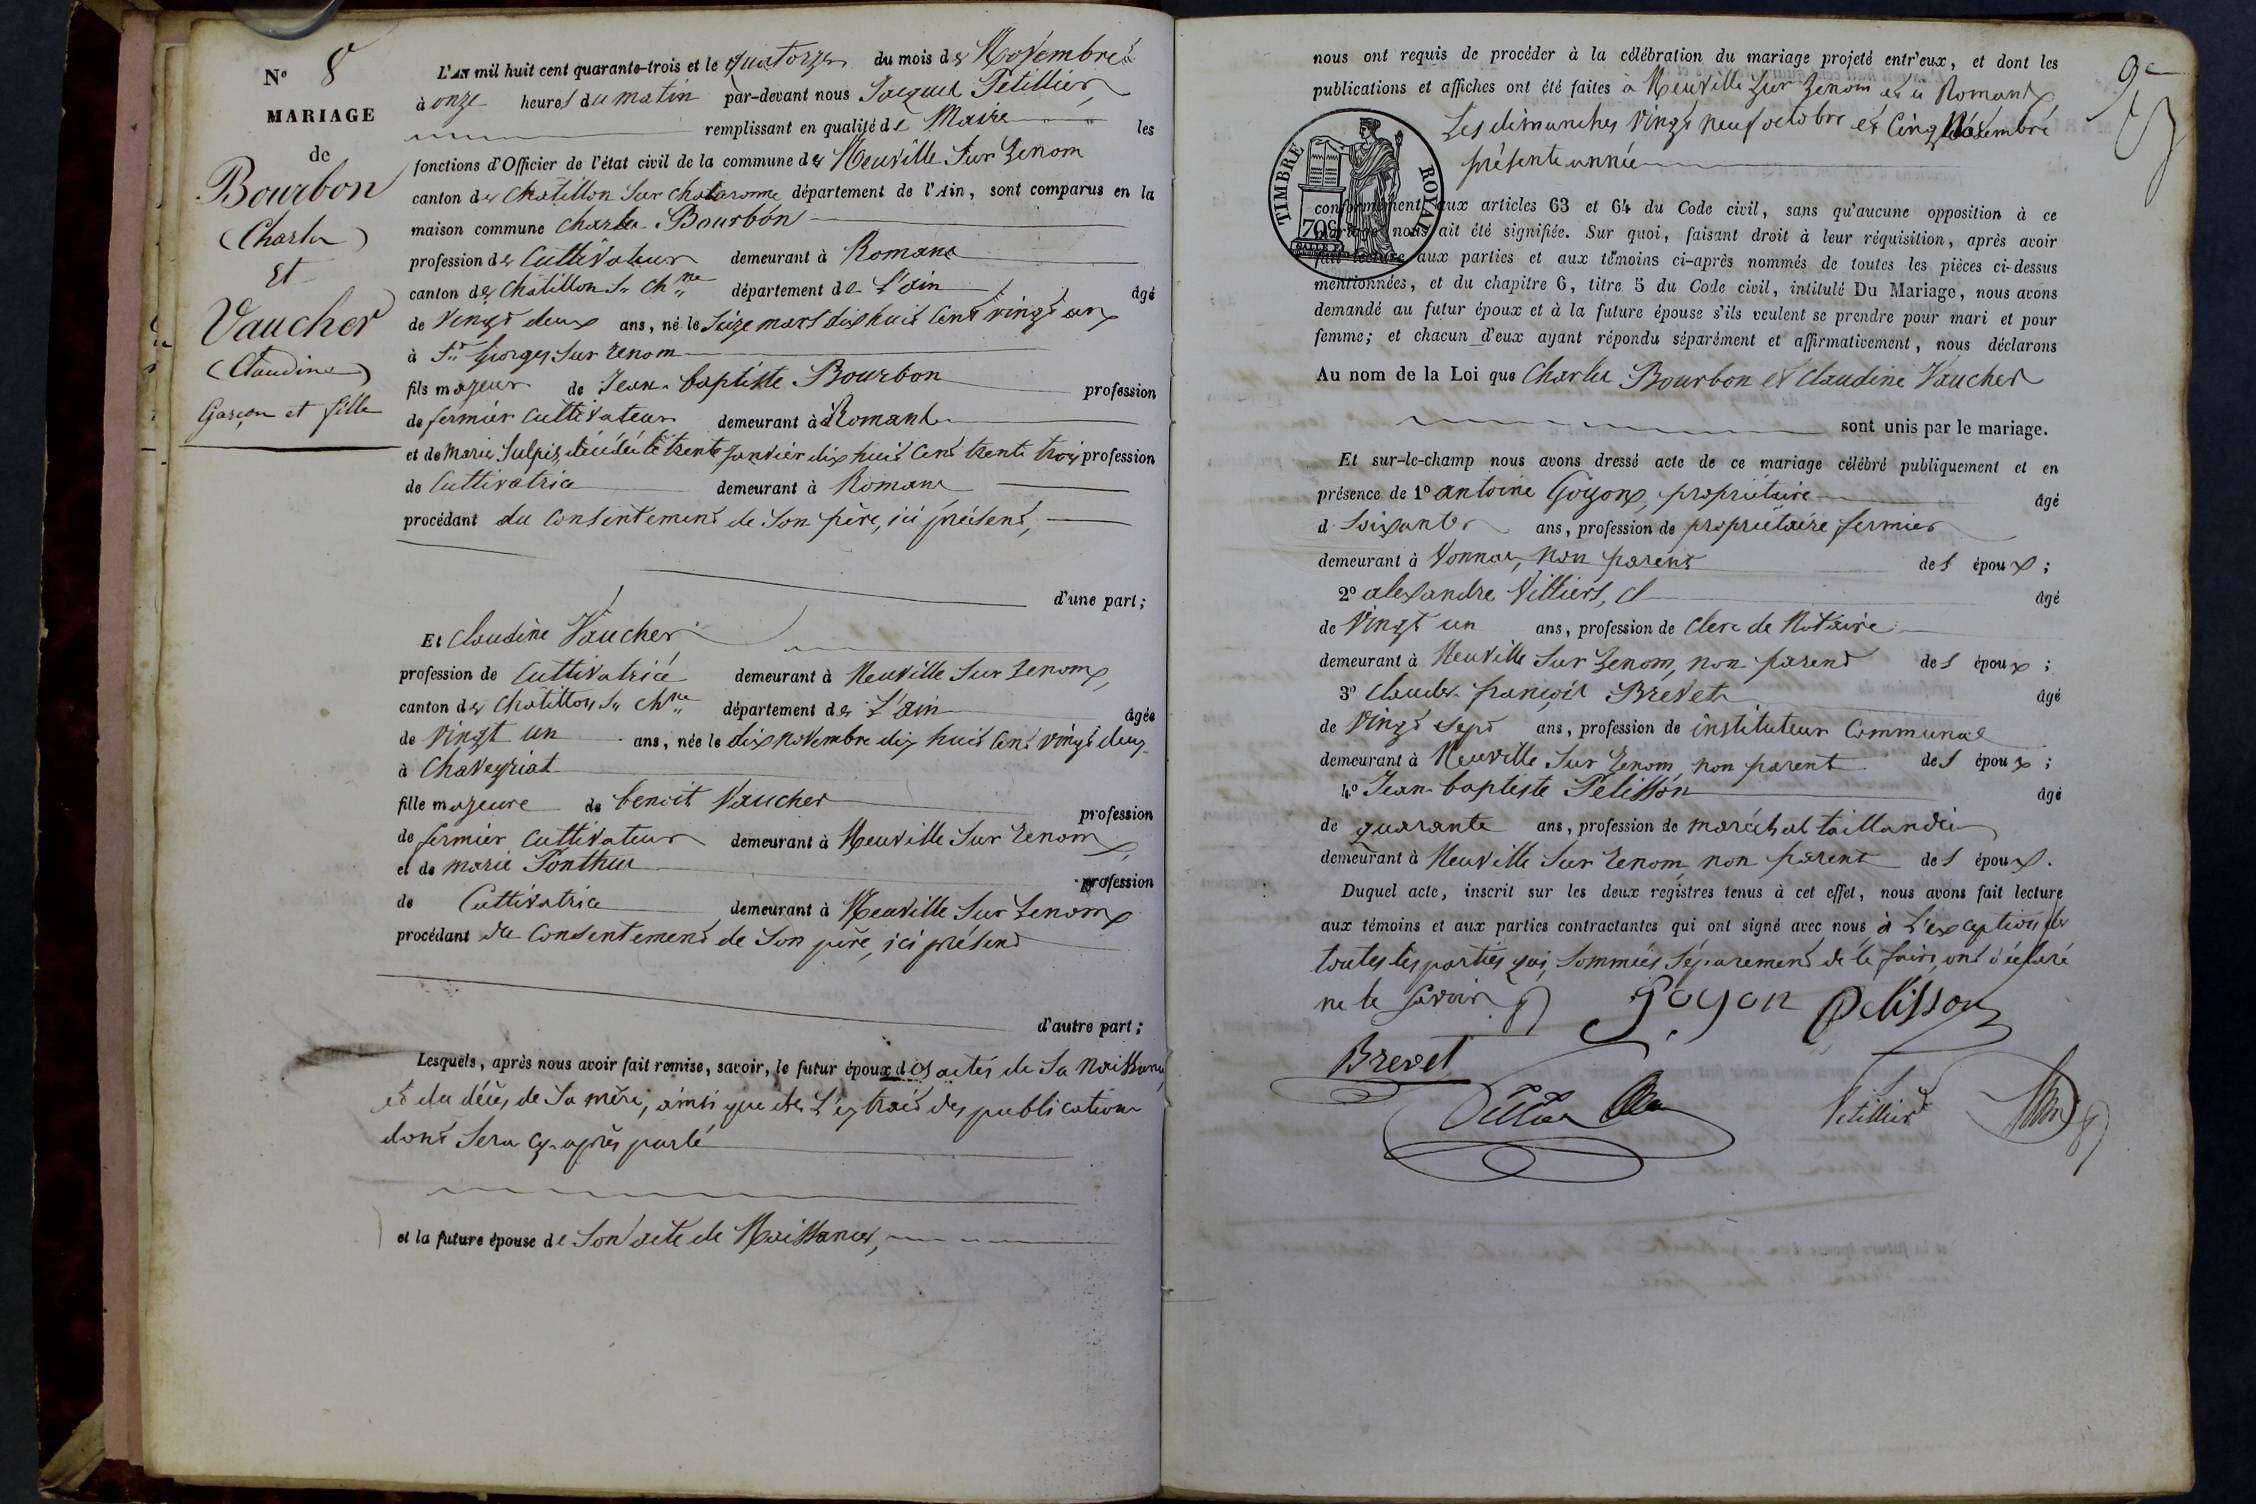 N° 8
MARIAGE
de
Bourbon
(Charles)
Et
Vaucher
(Claudine)
Garçon et fille
L'AN mil huit cent quarante-trois et le quatorze du mois de Novembre
à onze heures du matin par-devant nous Jacques Petillier
remplissant en qualité de Maire les
fonctions d'Officier de l'état civil de la commune de Neuville Sur Renom
canton de Chatillon Sur Chalaronne département de l'Ain, sont comparus en la
maison commune Charles Bourbon
profession de Cultivateur demeurant à Romans
canton de Chatillon Sr Chne département de L'ain âgé
de vingt deux ans, né le Seize mars dix huit cent vingt un
à St Georges Sur Renom
fils majeur de Jean-baptiste Bourbon profession
de fermier Cultivateur demeurant à Romans
et de Marie Sulpis, décédée le trente janvier dix huit cent trente trois profession
de Cultivatrice demeurant à Romans
procédant du Consentement de Son père, ici présent,
d'une part;
Et Claudine Vaucher
profession de Cultivatrice demeurant à Neuville Sur Renom,
canton de Chatillon Sr Chne département de L'ain âgée
de vingt un ans, née le dix novembre dix huit cent vingt deux
à Chaveyriat
fille majeure de benoit Vaucher profession
de fermier Cultivateur demeurant à Neuville Sur Renom,
et de marie Ponthus profession
de Cultivatrice demeurant à Neuville Sur Renom
procédant du Consentement de Son père, ici présent
d'autre part;
Lesquels, après nous avoir fait remise, savoir, le futur époux des actes de Sa Naissance,
et du décès de Sa mère, ainsi que de L'extrait des publications
dont Sera cy-après parlé
et la future épouse de Son acte de Naissance,
9e
nous ont requis de procéder à la célébration du mariage projeté entr'eux, et dont les
publications et affiches ont été faites à Neuville Sur Renom et à Romans,
Les dimanches vingt neuf octobre et Cinq Novembre
présente année
TIMBRE ROYAL
70c
conformément aux articles 63 et 64 du Code civil, sans qu'aucune opposition à ce
mariage nous ait été signifiée. Sur quoi, faisant droit à leur réquisition, après avoir
fait lecture aux parties et aux témoins ci-après nommés de toutes les pièces ci-dessus
mentionnées, et du chapitre 6, titre 5 du Code civil, intitulé Du Mariage, nous avons
demandé au futur époux et à la future épouse s'ils veulent se prendre pour mari et pour
femme; et chacun d'eux ayant répondu séparément et affirmativement, nous déclarons
Au nom de la Loi que Charles Bourbon et Claudine Vaucher
sont unis par le mariage.
Et sur-le-champ nous avons dressé acte de ce mariage célébré publiquement et en
présence de 1° antoine Goyon, propriétaire âgé
d Soixante ans, profession de propriétaire fermier
demeurant à Vonnas, non parent des époux;
2° alexandre Villiers, âgé
de vingt un ans, profession de Clerc de Notaire
demeurant à Neuville Sur Renom, non parent des époux;
3° Claude françois Brevet âgé
de vingt sept ans, profession de instituteur Communal
demeurant à Neuville Sur Renom, non parent des époux;
4° Jean-baptiste Pelisson âgé
de quarante ans, profession de maréchal taillandier
demeurant à Neuville Sur Renom, non parent des époux.
Duquel acte, inscrit sur les deux registres tenus à cet effet, nous avons fait lecture
aux témoins et aux parties contractantes qui ont signé avec nous à L'exception de
toutes les parties qui, Sommées Séparement de le faire, ont déclaré
ne le Savoir
Goyon Pelisson
Brevet
Petillier